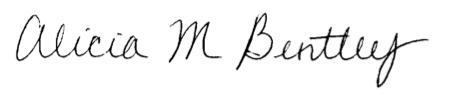 Alicia M Bentley